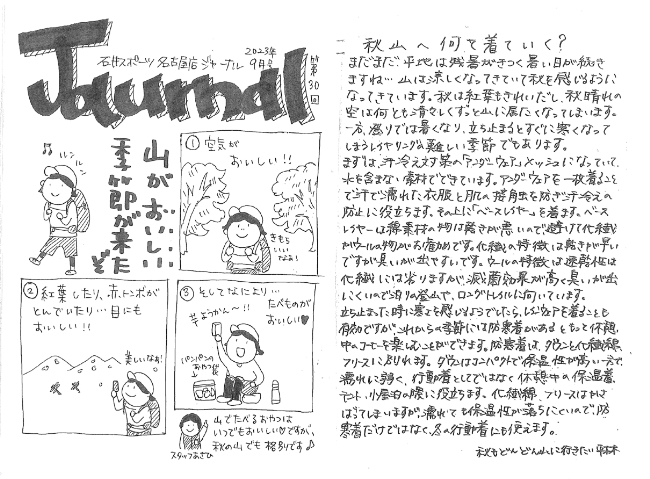 Journal
石井スポーツ名古屋店ジャーナル
2023年
9月号
第30回
山がおいしい
季節が来たぞ
ルンルン
① 空気が
おいしい!!
きもち
いい
なあ!
② 紅葉したり、赤トンボが
とんでいたり…目にも
おいしい!!
美しいなぁ!
③ そしてなにより…
たべものが
おいしい♥
芋ようかん〜!!
パンパンの
おやつ袋
山でたべるおやつは
いつでもおいしい♡ですが、
秋の山でも格別です♪
スタッフあさひ
秋山へ何を着ていく?
まだまだ平地は残暑がきつく暑い日が続き
ますね…山は涼しくなってきていて秋を感じるように
なってきています。秋は紅葉もきれいだし、秋晴れの
空は何とも清々しくずっと山に居たくなってしまいます。
一方、登りでは暑くなり、立ち止まるとすぐに寒くなって
しまうレイヤリングの難しい季節でもあります。
まずは、汗冷え対策の「アンダーウェア」。メッシュになっていて、
水を含まない素材でできています。アンダーウェアを一枚着ること
で汗で濡れた衣服と肌の接触を防ぎ汗冷えの
防止に役立ちます。その上に「ベースレイヤー」を着ます。ベース
レイヤーは綿素材の物は乾きが悪いので避けて化繊
かウールの物がお薦めです。化繊の特徴は乾きが早い
ですが臭いが出やすいです。ウールの特徴は速乾性は
化繊には劣りますが、滅菌効果が高く臭いが出
にくいので泊りの登山で、ロングトレイルに向いています。
立ち止まった時に寒さを感じるようでしたら、レインウェアを着ることも
有効ですが、これからの季節には防寒着があるともっと休憩
中のコーヒーを楽しむことができます。防寒着は、ダウンと化繊綿、
フリースに分けれます。ダウンはコンパクトで保温性が高い一方で、
濡れに弱く、行動着としてではなく休憩中の保温着、
テント、小屋泊の際に役立ちます。化繊綿、フリースはかさ
ばってしまいますが、濡れても保温性が落ちにくいので、防
寒着だけではなく、冬の行動着にも使えます。
秋もどんどん山に行きたい